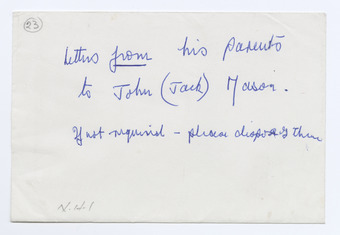 23
Letters from his parents
to John (Jack) Mason.
If not required - please dispose of them
N.H.1